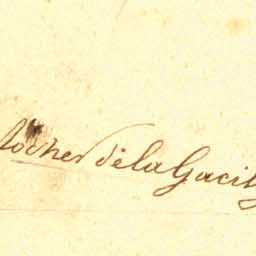 Rocher de la Gacily